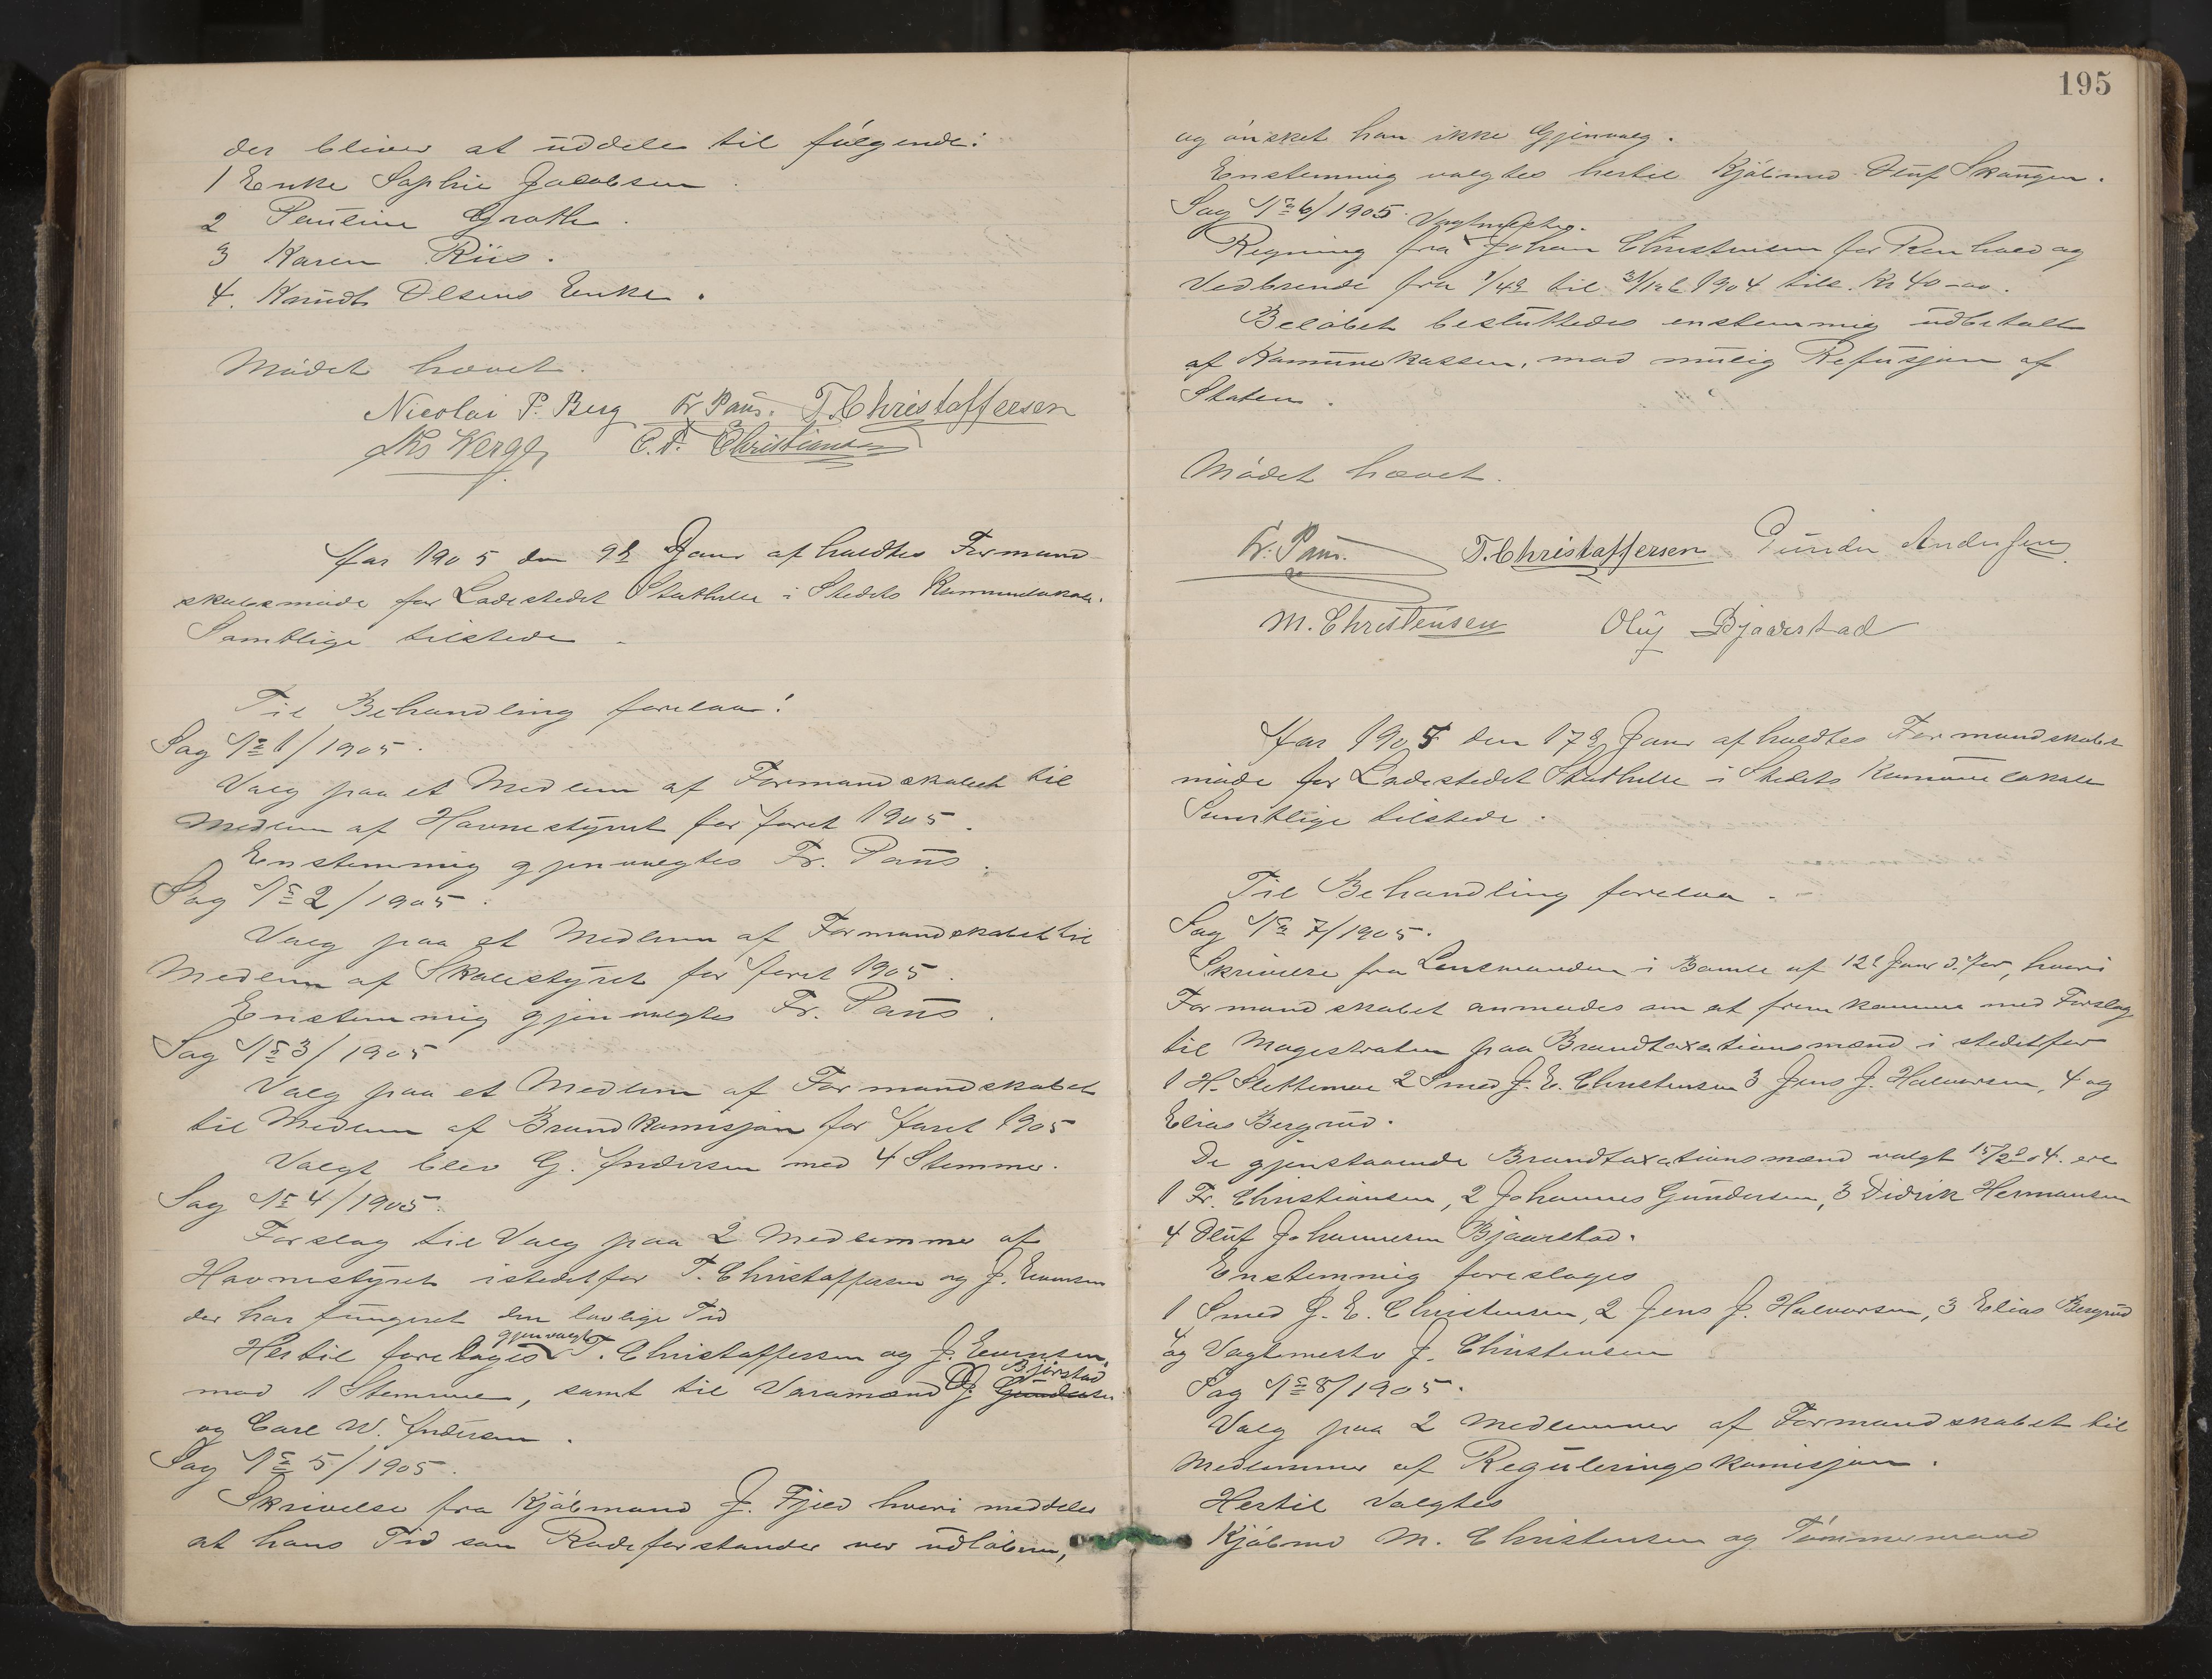 der bliver at uddele til følgende:
1 Enke Sophie Jacobsen
2 Pauline Groth
3 Karen Riis.
4. Knudt Olsens Enke.
Mødet hævet.
Nicolai P. Berg Fr Paus. T. Christoffersen
C. F. Christiansen
Aar 1905 den 9d Janr afholdtes Formand
skabsmøde for Ladestedet Stathelle i Stedets Kommunelokale.
Samtlige tilstede.
Til Behandling forelaa:
Sag No 1/1905.
Valg paa et Medlem af Formandskabet til
Medlem af Havnestyret for Aaret 1905.
Enstemmig gjenvalgtes Fr. Paus.
Sag No 2/1905.
Valg paa et Medlem af Formandskabet til
Medlem af Skolestyret for Aaret 1905.
Enstemmig gjenvalgtes Fr. Paus.
Sag No 3/1905
Valg paa et Medlem af Formandskabet
til Medlem af Brandkomisjon for Aaret 1905
Valgt blev G. Andersen med 4 Stemmer.
Sag No 4/1905.
Forslag til Valg paa 2 Medlemmer af
Havnestyret istedetfor T. Christoffersen og J. Evensen
der har fungeret den lovlige Tid
Hertil foretages gjenvalgt T. Christoffersen og J. Evensen.
mod 1 Stemme, samt til Varamænd O J. Gundersen Bjørstad
og Carl W. Andersen.
Sag No 5/1905.
Skrivelse fra Kjøbmand J. Fjeld hvori meddeles
at hans Tid som Rodeforstander var udløben,
195
og ønsket han ikke Gjenvalg.
Enstemmig valgtes hertil Kjøbmd Oluf Skougen.
Sag No 6/1905.
Regning fra Vagtmester Johan Christensen for Renhold og
Vedbrende fra 1/4d til 31/12d 1904 tils. Kr 40-00.
Beløbet besluttedes enstemmig udbetalt
af Komunekassen, mod mulig Refusjon af
Staten.
Mødet hævet.
Fr. Paus. T. Christoffersen Gunder Andersen
M. Christensen Oluf Bjaarstad
Aar 1905 den 17d Janr afholdtes Formandskabs
møde for Ladestedet Stathelle i Stedets Komunelokale
Samtlige tilstede.
Til Behandling forelaa.
Sag No 7/1905.
Skrivelse fra Lensmanden i Bamle af 12d Janr d. Aar, hvori
Formandskabet anmodes om at fremkomme med Forslag
til Magestraten paa Brandtaxationsmænd i stedetfor
1 H. 2 Smed J. E. Christensen 3 Jens J. Halvorsen, 4 og
Elias Bergrud.
De gjenstaaende Brandtaxationsmænd valgt 15/2 04. ere
1 Fr. Christiansen, 2 Johannes Gundersen, 3 Didrik Hermansen
4 Oluf Johannesen Bjaarstad.
Enstemmig foreslages
1 Smed J. E. Christensen, 2 Jens J. Halvorsen, 3 Elias Bergrud
4 og Vagtmester J. Christensen
Sag No 8/1905.
Valg paa 2 Medlemmer af Formandskabet til
Medlemmer af Reguleringskomisjon.
Hertil Valgtes
Kjøbmd M. Christensen og Tømmermand